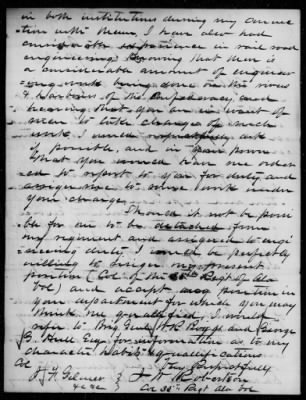 in both institutions during my connec
tion with them, I have also had
considerable experience in rail road
engineering. Knowing that there is
a considerable amount of engineer
ing work being done on the rivers
& Harbors of the Confederacy, and
hearing that you are in want of
men to take charge of such
work I would respectfully ask
if possible, and in your power
that you would have me order
ed to report to you for duty and
assign me to some work under
your charge.
Should it not be possi
ble for me to be detached from
my regiment and assigned to engi
neering duty, I would be perfectly
willing to resign my present
position (Col of the Regt of Ala
Vol) and accept any position in
your department for which you may
think me qualified, I would
refer to Brig Genl W R Boggs and George
Hull Esqr for information as to my
character habits & qualifications
Very Respectfully
J F Gilmer
&c &c
J Robertson
Col 35th Regt Ala Vol